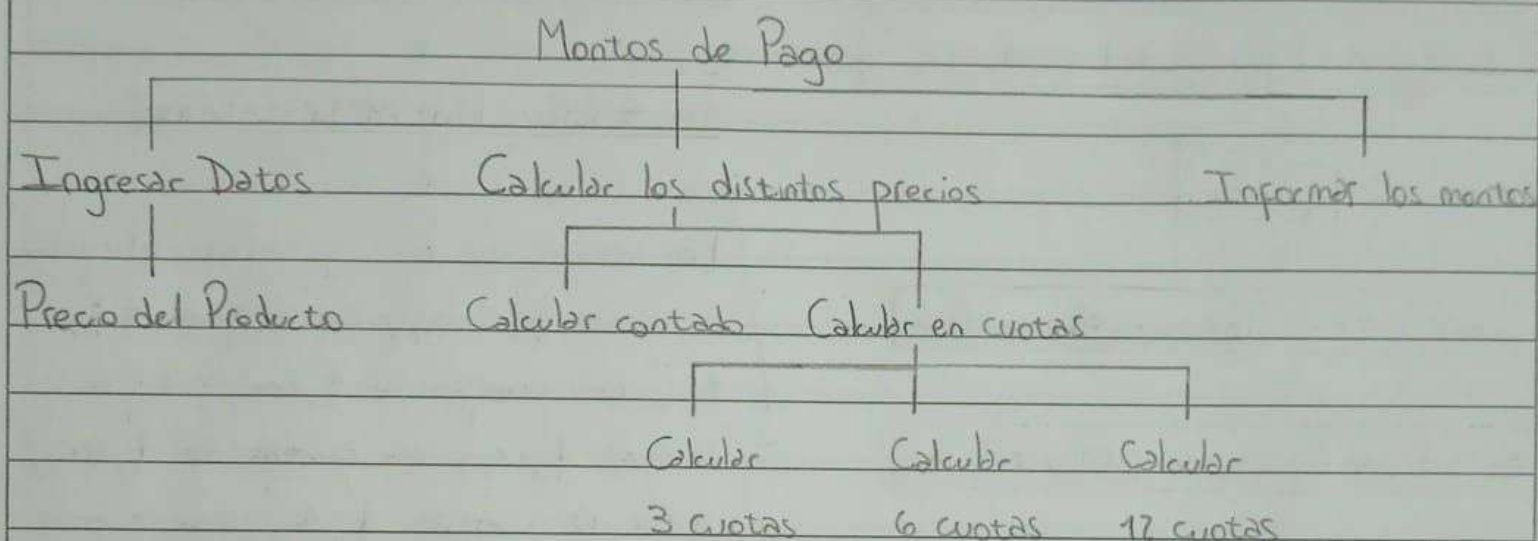 Montos de Pago
Ingresar Datos Calcular los distintos precios Informar los montos
Precio del Producto Calcular contado Calcular en cuotas
Calcular Calcular Calcular
3 cuotas 6 cuotas 12 cuotas